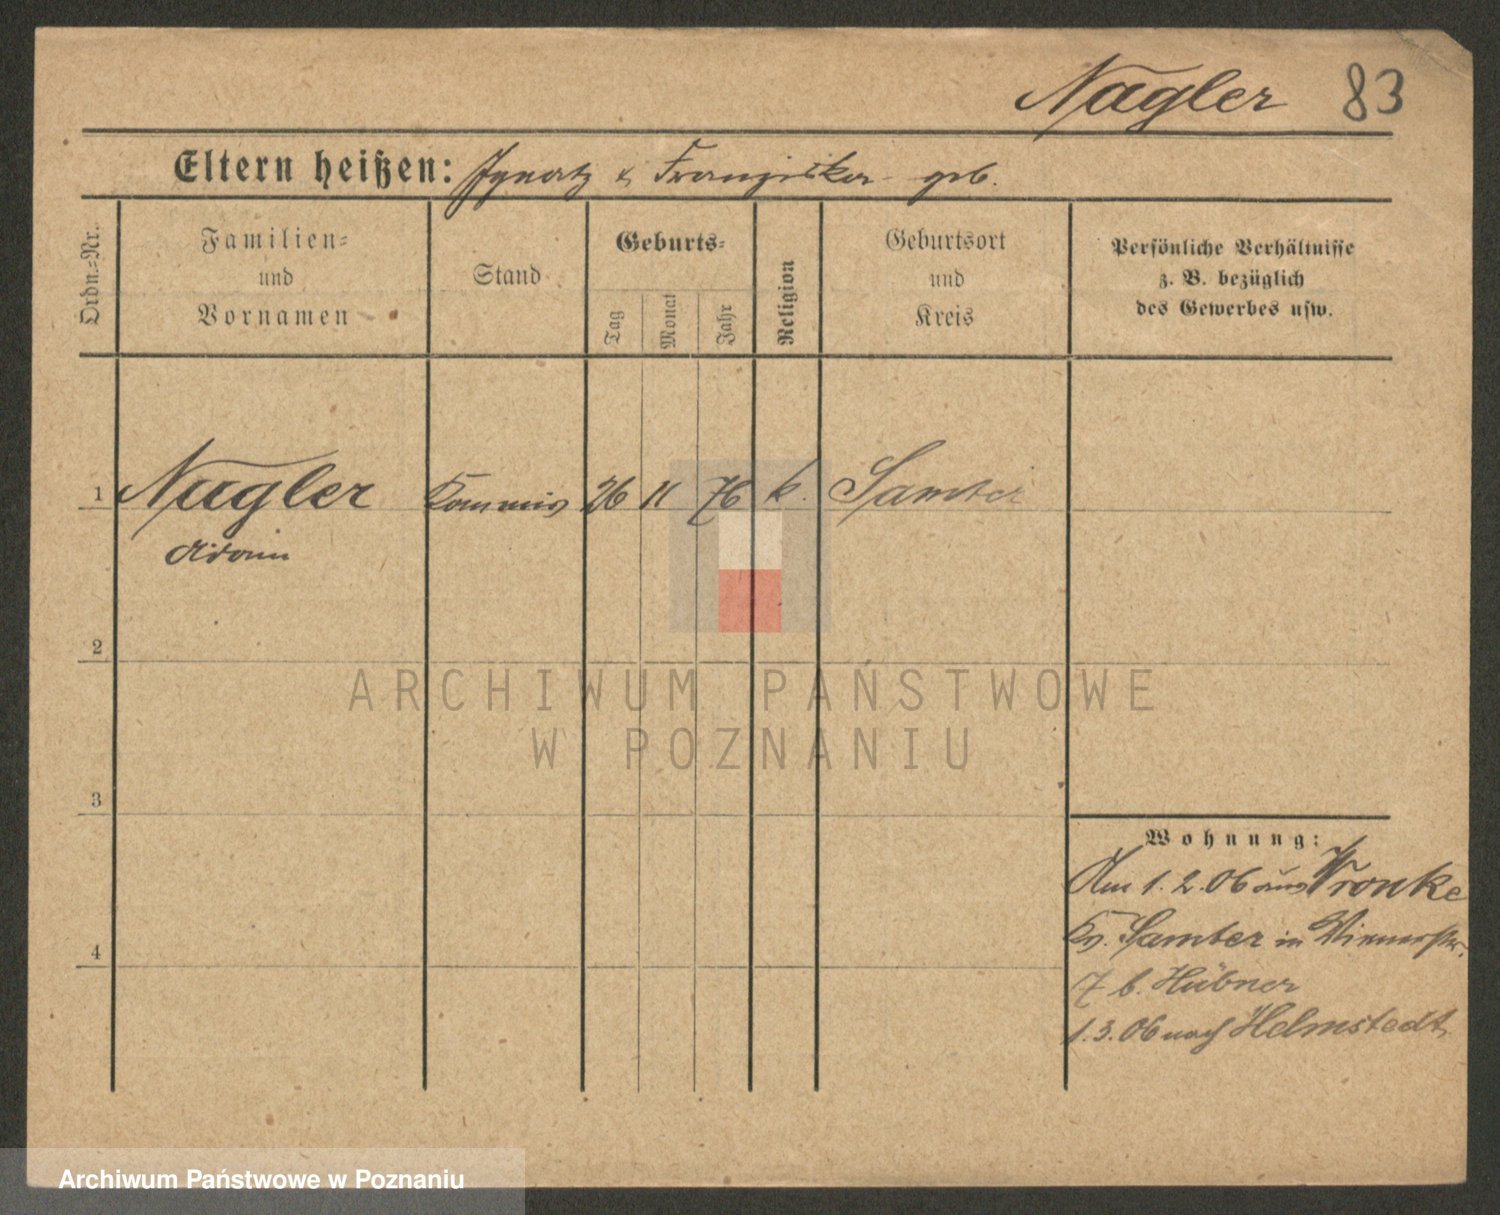 Nagler 83
Eltern heißen: Ignatz & Franziska geb.
Ordn.-Nr.
Familien-
und
Vornamen
Stand
Geburts-
Tag
Monat
Jahr
Religion
Geburtsort
und
Kreis
Persönliche Verhältnisse
z. B. bezüglich
des Gewerbes usw.
1 Nagler Kommis 26 11 76 k. Samter
2
ARCHIWUM PAŃSTWOWE
W POZNANIU
3
Wohnung:
Am 1.2.06 aus Wronke
Kr. Samter in
4
7 b. Hübner
1.3.06 nach Helmstedt
Archiwum Państwowe w Poznaniu